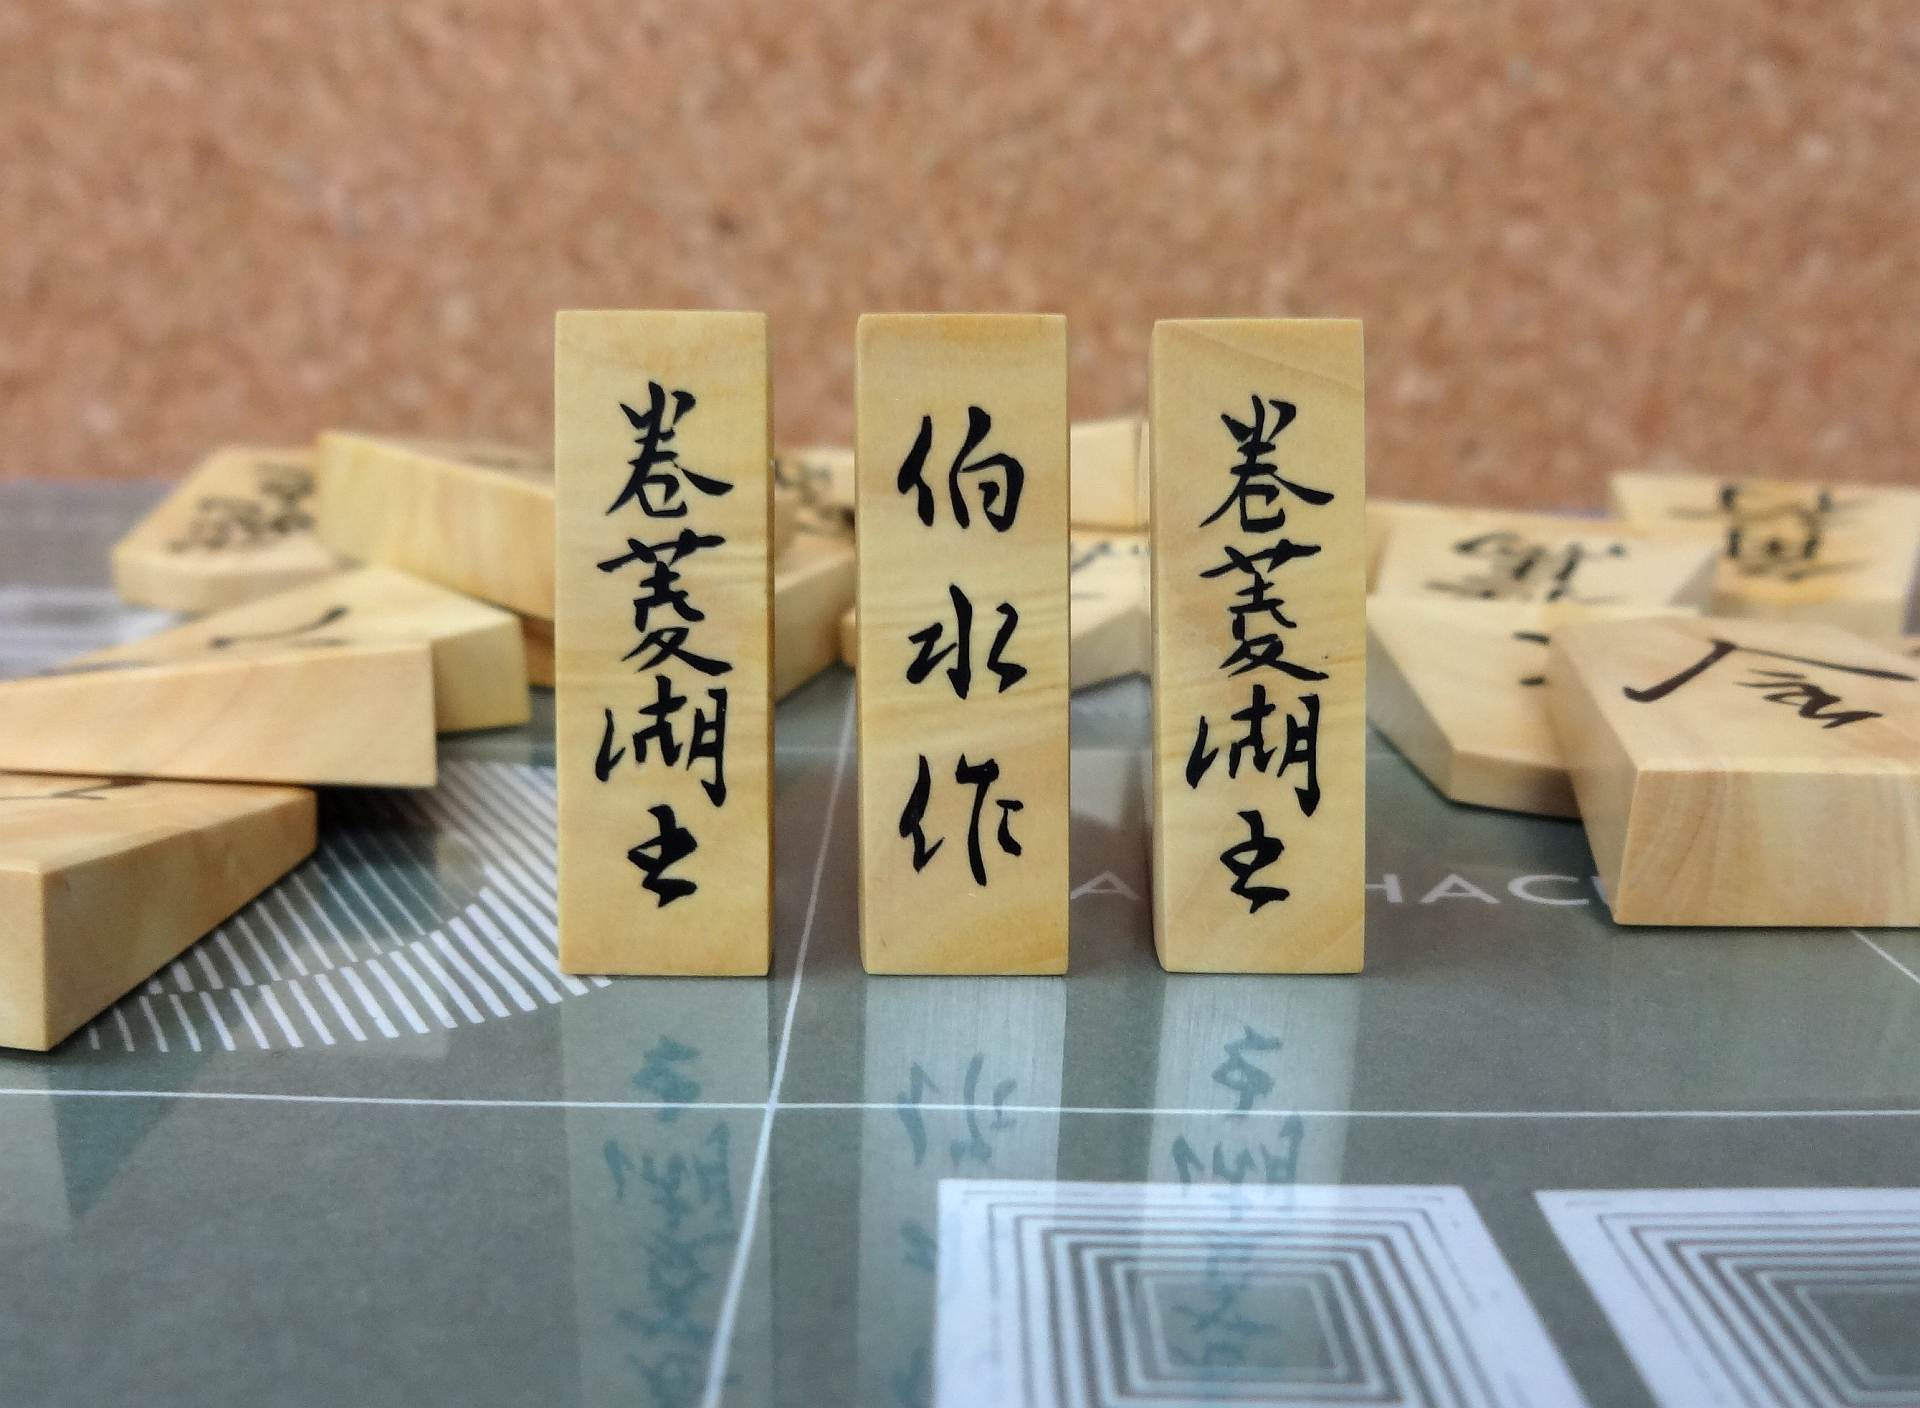 巻菱湖書
伯水作
巻菱湖書
A
HAC